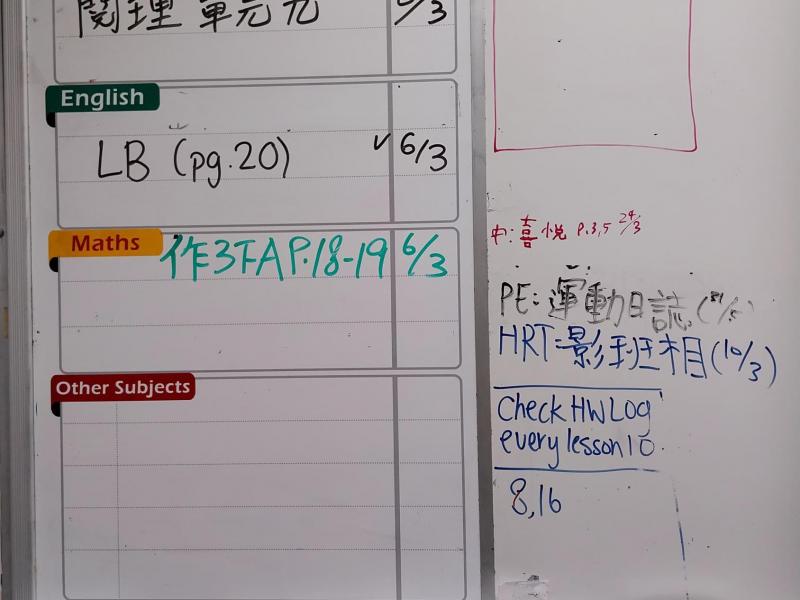 閱理 單元九 6/3
English
LB (pg.20) ✓ 6/3
Maths 作3下A P.18-19 6/3
Other Subjects
中: 喜悅 P.3,5 24/3
PE: 運動日誌
HRT: 影班相 (10/3)
Check HW LOG
every lesson 10
8,16